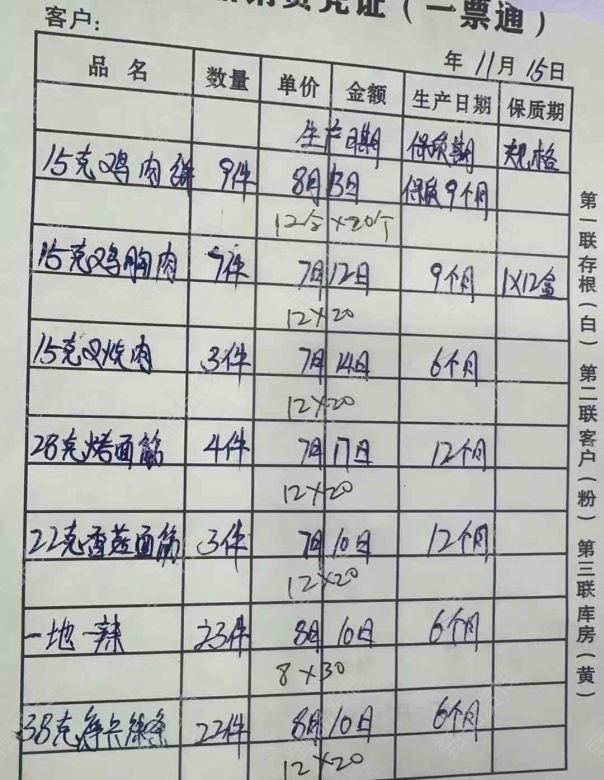 销货凭证（一票通）
客户：
年 11月 15日
品名 数量 单价 金额 生产日期 保质期
生产日期 保质期 规格
15克鸡肉 9件 8月13日 保质9个月
12合×20个
15克鸡胸肉 7件 7月12日 9个月 1×12盒
12×20
15克叉烧肉 3件 7月14日 6个月
12×20
28克烤面筋 4件 7月17日 12个月
12×20
22克香菇面筋 3件 7月10日 12个月
12×20
一地一辣 23件 8月10日 6个月
8×30
38克 22件 8月10日 6个月
12×20
第一联存根（白）第二联客户（粉）第三联库房（黄）